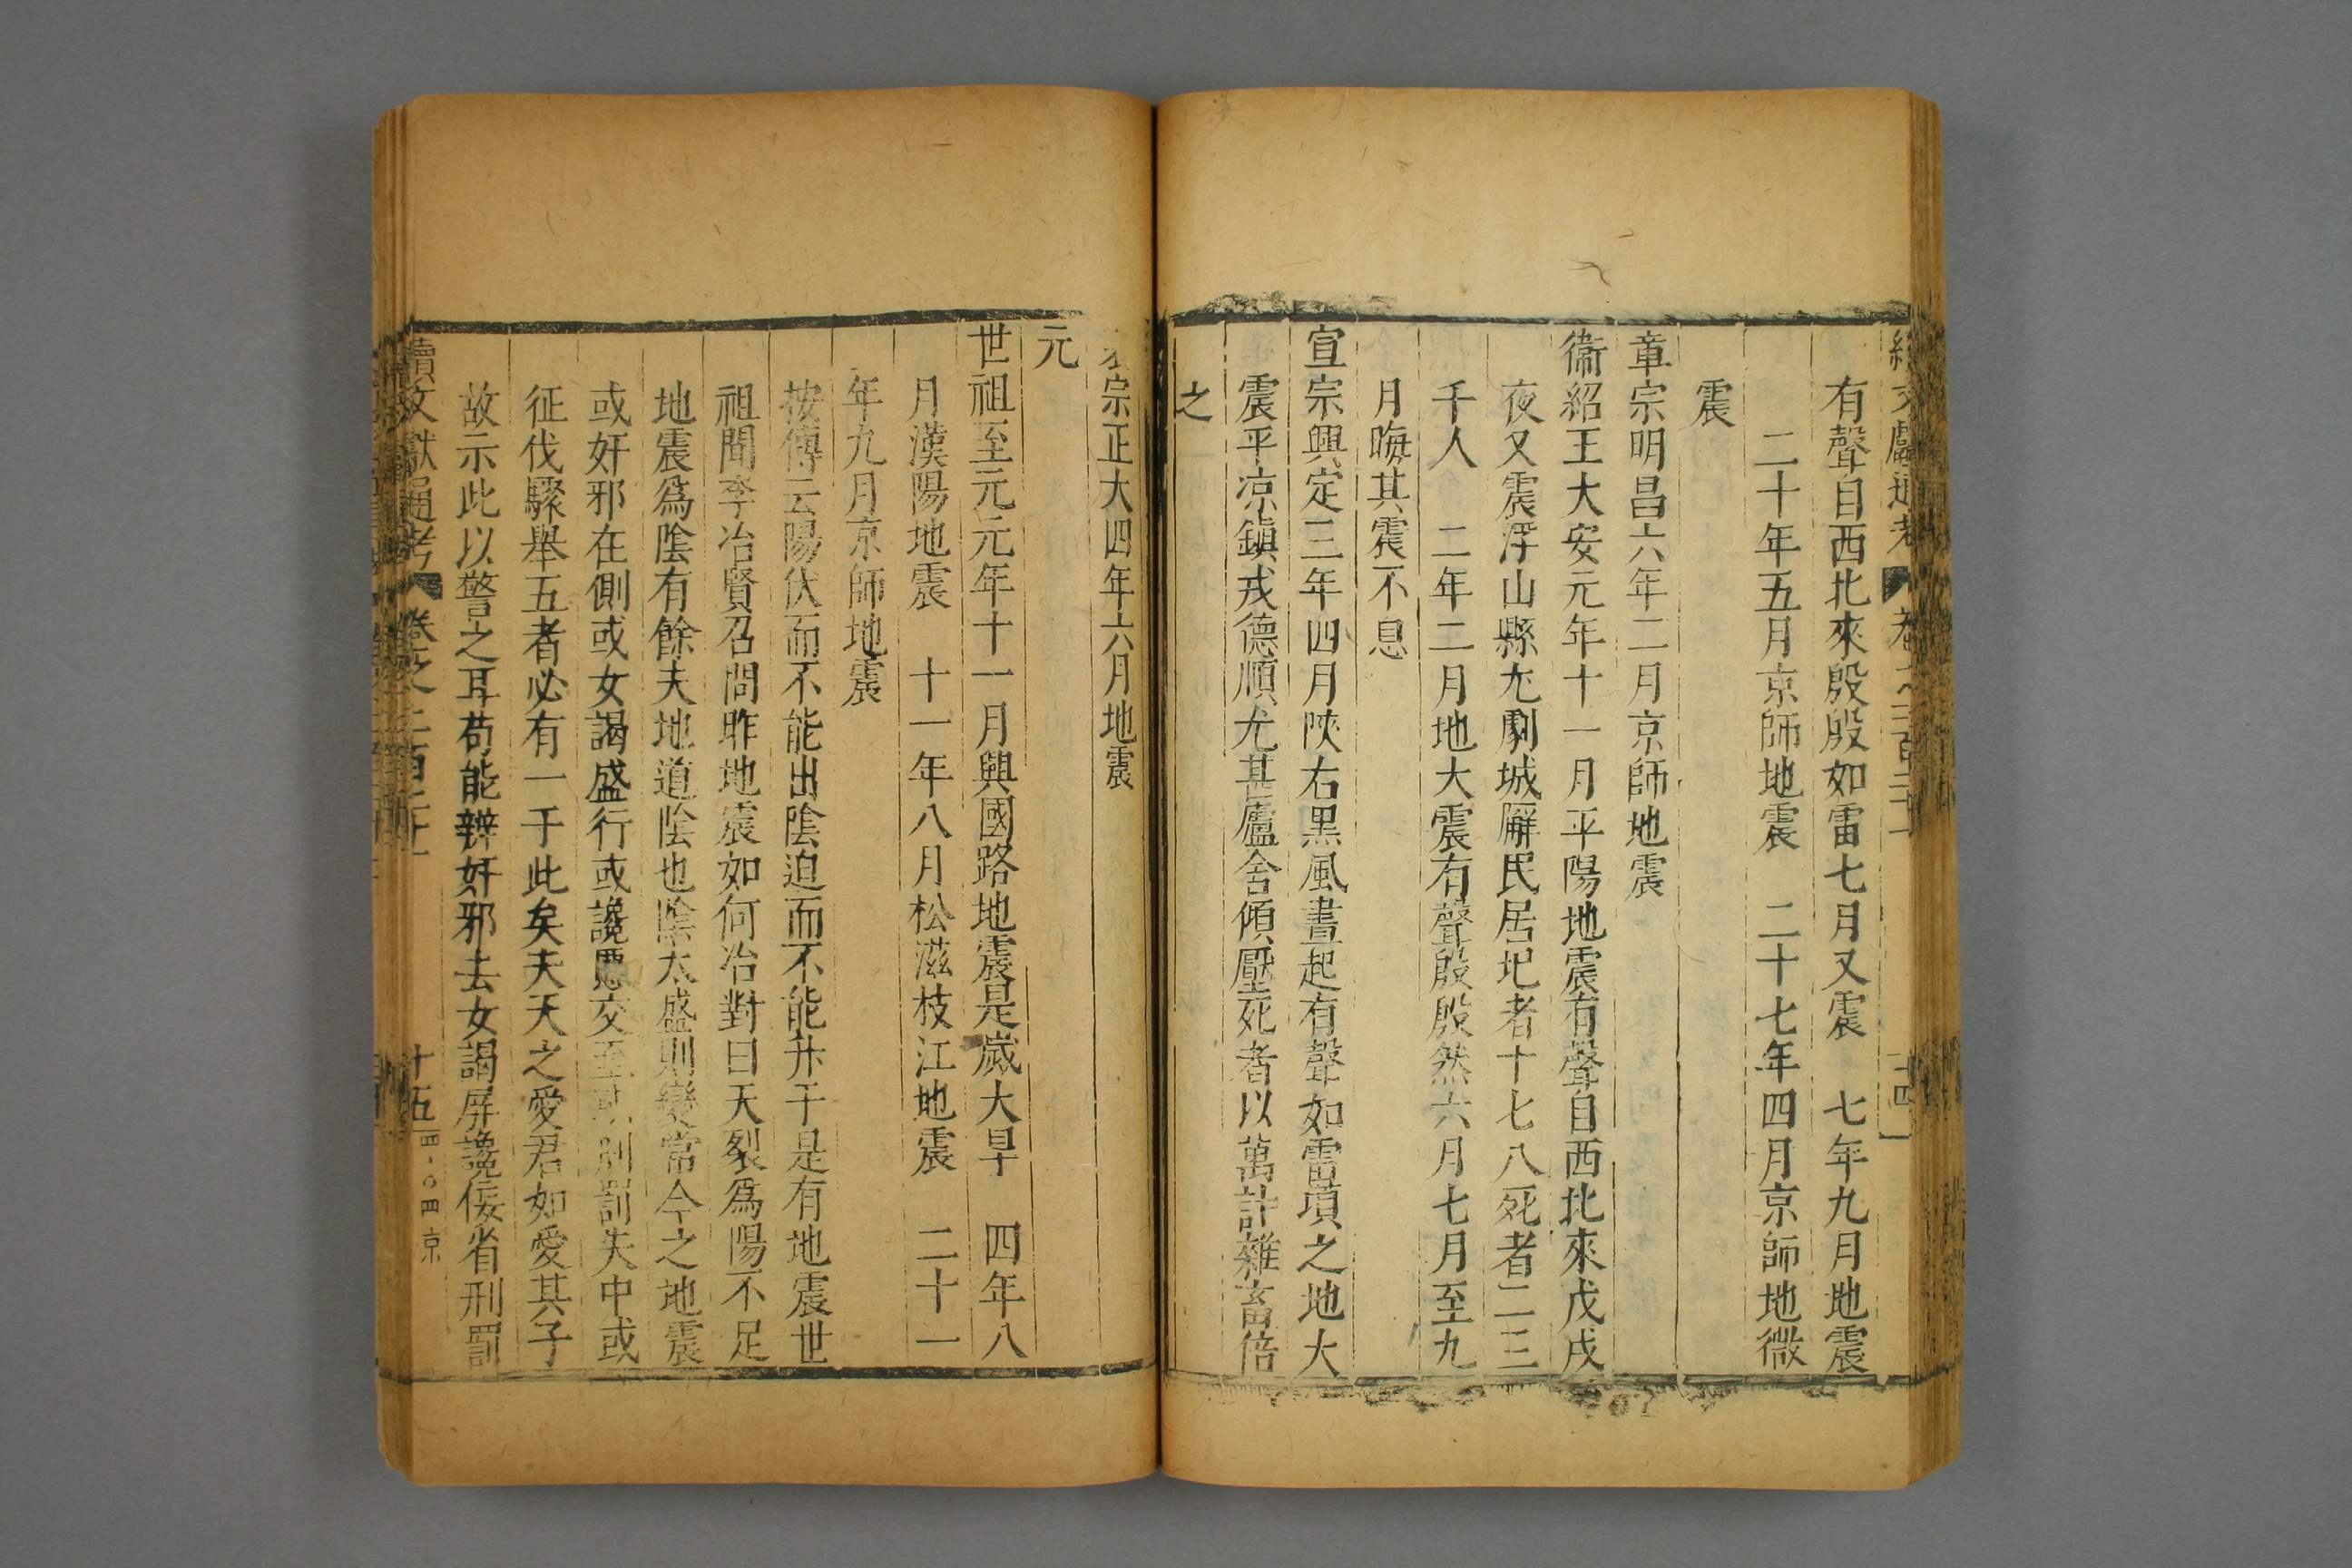 有聲自西北來殷殷如雷七月又震　七年九月地震
二十年五月京師地震　二十七年四月京師地微
震
章宗明昌六年二月京師地震
衞紹王大安元年十一月平陽地震有聲自西北來戊戌
夜又震浮山縣尤劇城廨民居圮者十七八死者二三
千人　二年二月地大震有聲殷殷然六月七月至九
月晦其震不息
宣宗興定三年四月陝右黑風晝起有聲如雷頃之地大
震平凉鎮戎德順尤甚廬舍傾壓死者以萬計雜畜倍
之
宗正大四年六月地震
元
世祖至元元年十一月興國路地震是歲大旱　四年八
月漢陽地震　十一年八月松滋枝江地震　二十一
年九月京師地震
按傳云陽伏而不能出陰迫而不能升于是有地震世
祖聞李冶賢召問昨地震如何冶對曰天裂爲陽不足
地震爲陰有餘夫地道陰也陰太盛則變常今之地震
或奸邪在側或女謁盛行或讒慝交至或刑罰失中或
征伐驟舉五者必有一于此矣夫天之愛君如愛其子
故示此以警之耳苟能辨奸邪去女謁屏讒佞省刑罰
續文獻通考　卷之二百二十一　十五　四·〇四　京